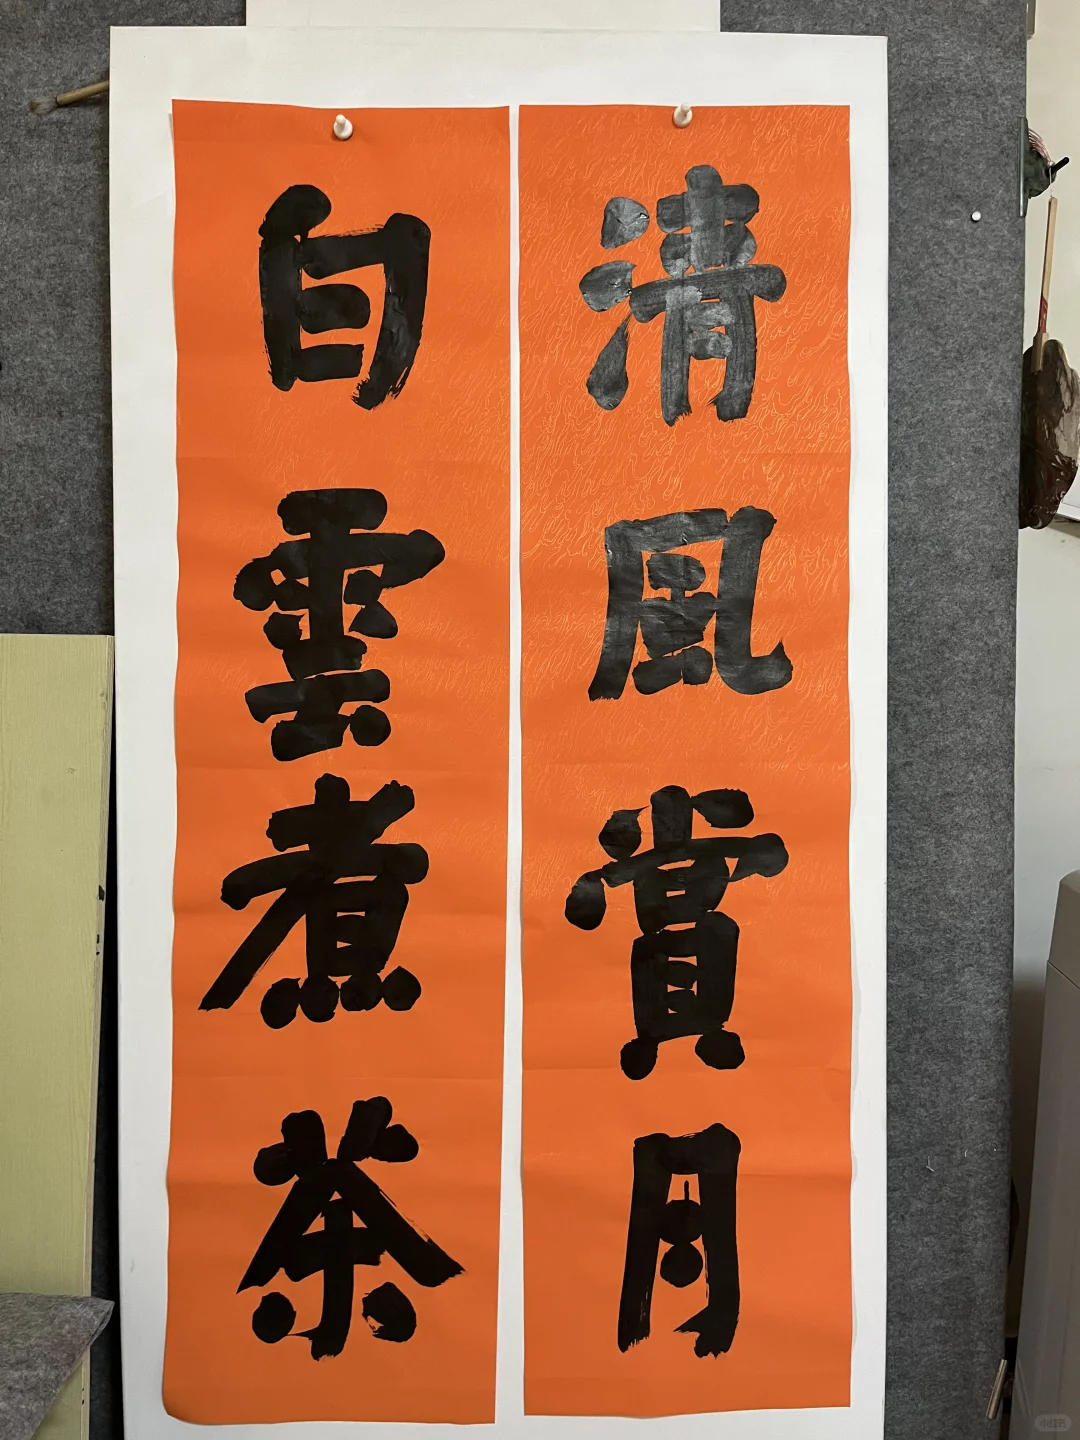 清風賞月
白雲煮茶